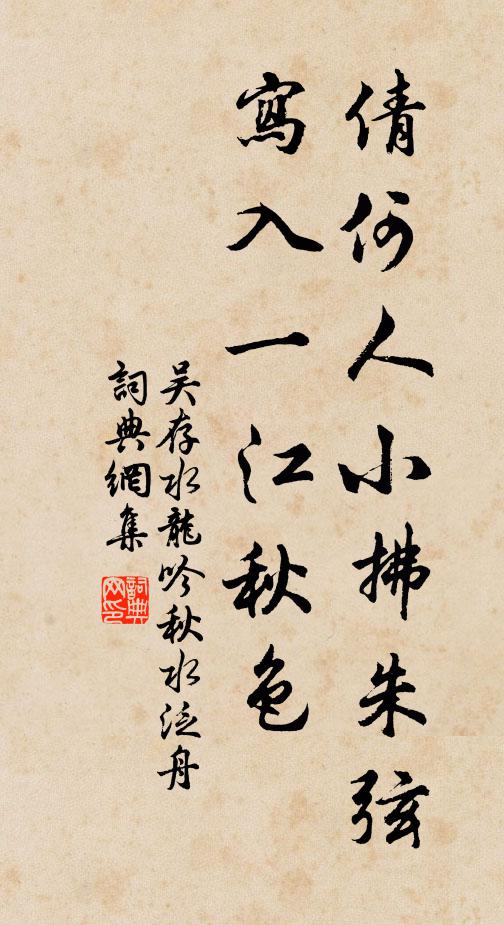 倩何人小拂朱弦
寫入一江秋色
吴存水龍吟秋水泛舟
詞典網集
詞典網印